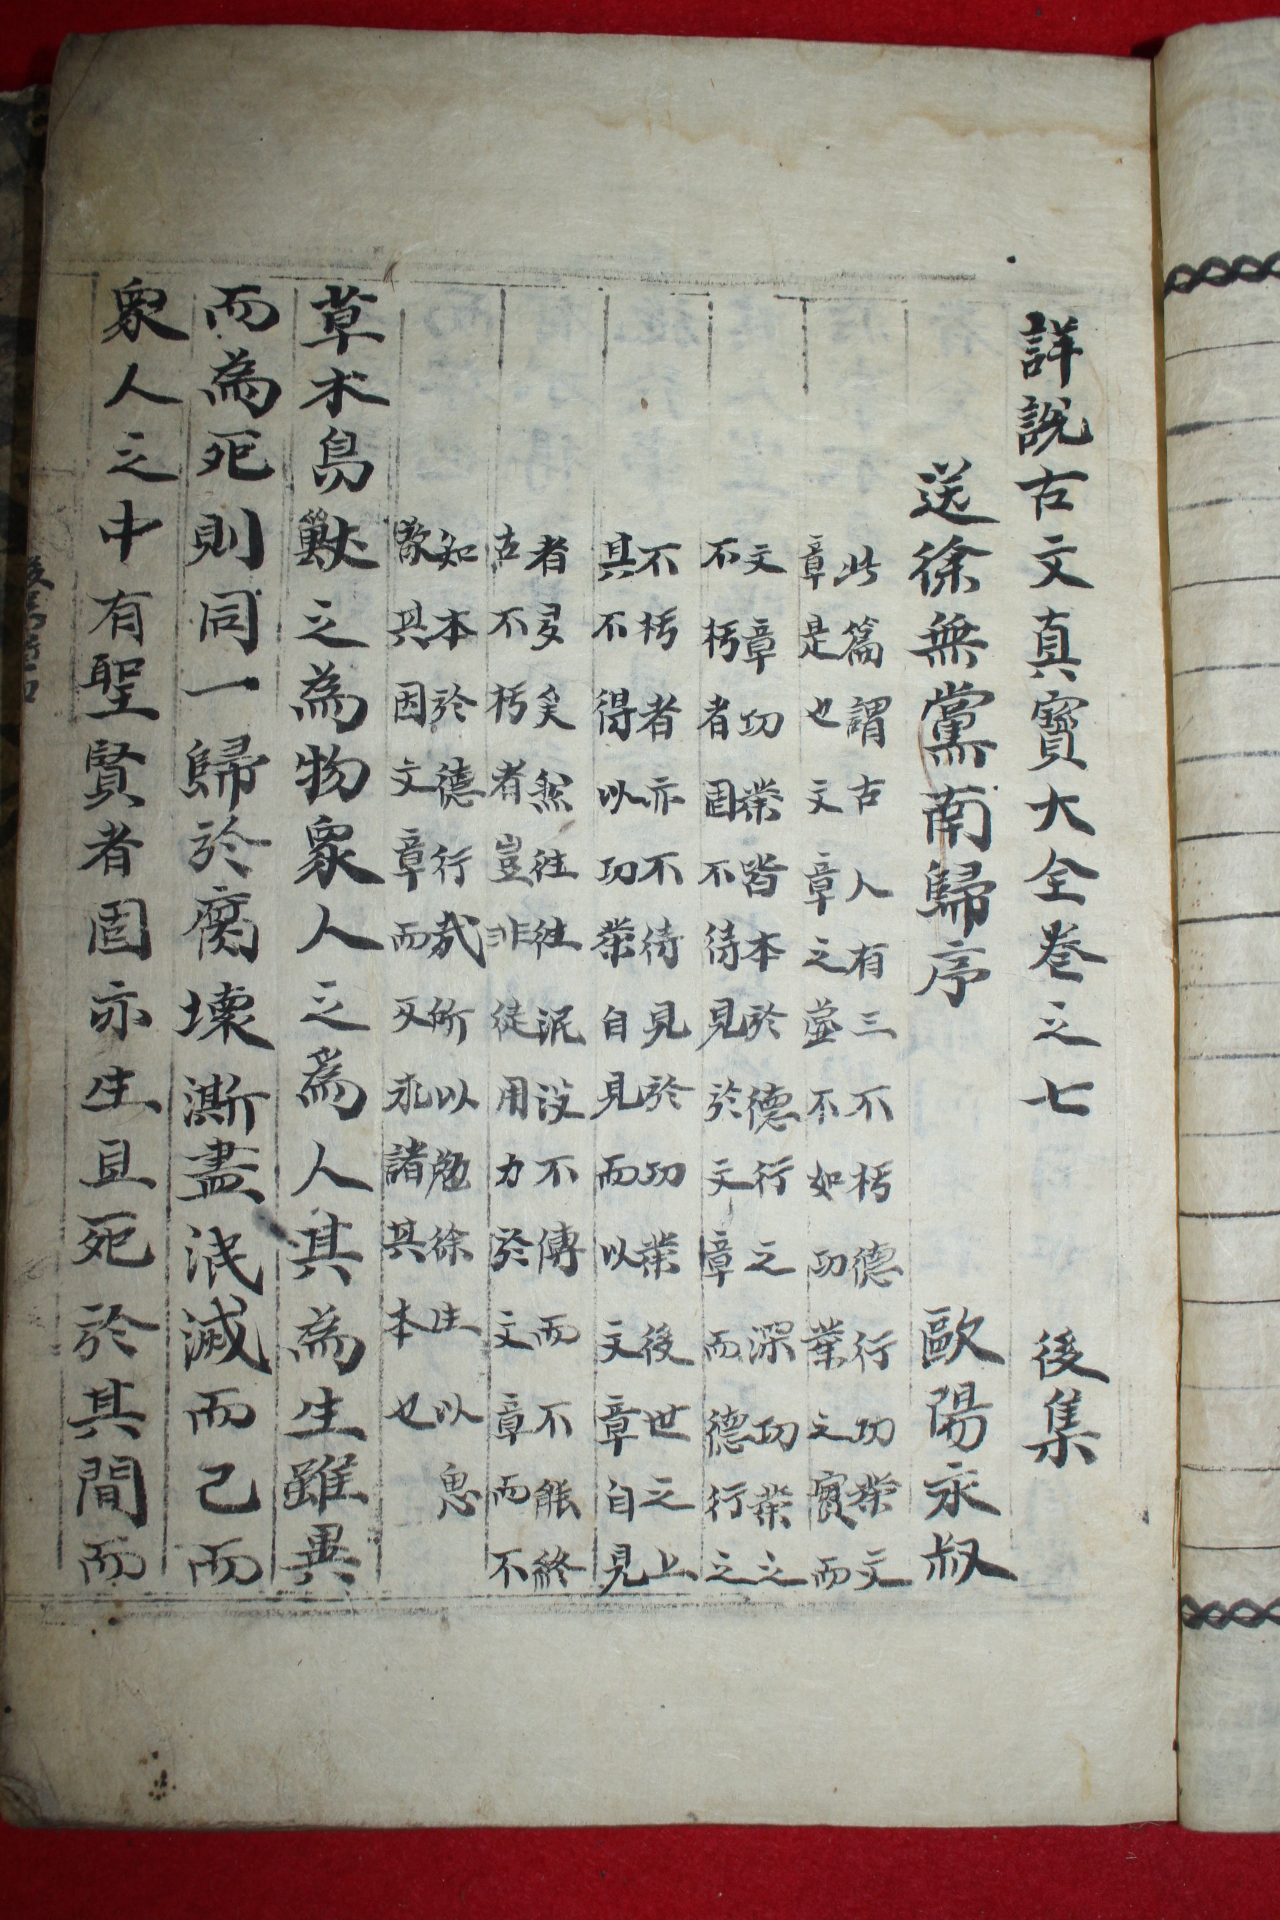 詳說古文真寶大全卷之七　後集
送徐無黨南歸序　歐陽永叔
此篇謂古人有三不朽德行功業文
章是也文章之虛不如功業之實而
文章功業皆本於德行之深功業之
不朽者固不待見於文章而德行之
不朽者亦不待見於功業後世之上
其不得以功業自見而以文章自見
者多矣然往往泯没不傳而不能終
古不朽者豈非徒用力於文章而不
知本於德行哉所以勉徐生以思
其因文章而又求諸其本也
草木鳥獸之為物衆人之為人其為生雖異
而為死則同一歸於腐壞澌盡泯滅而已而
衆人之中有聖賢者固亦生且死於其間而